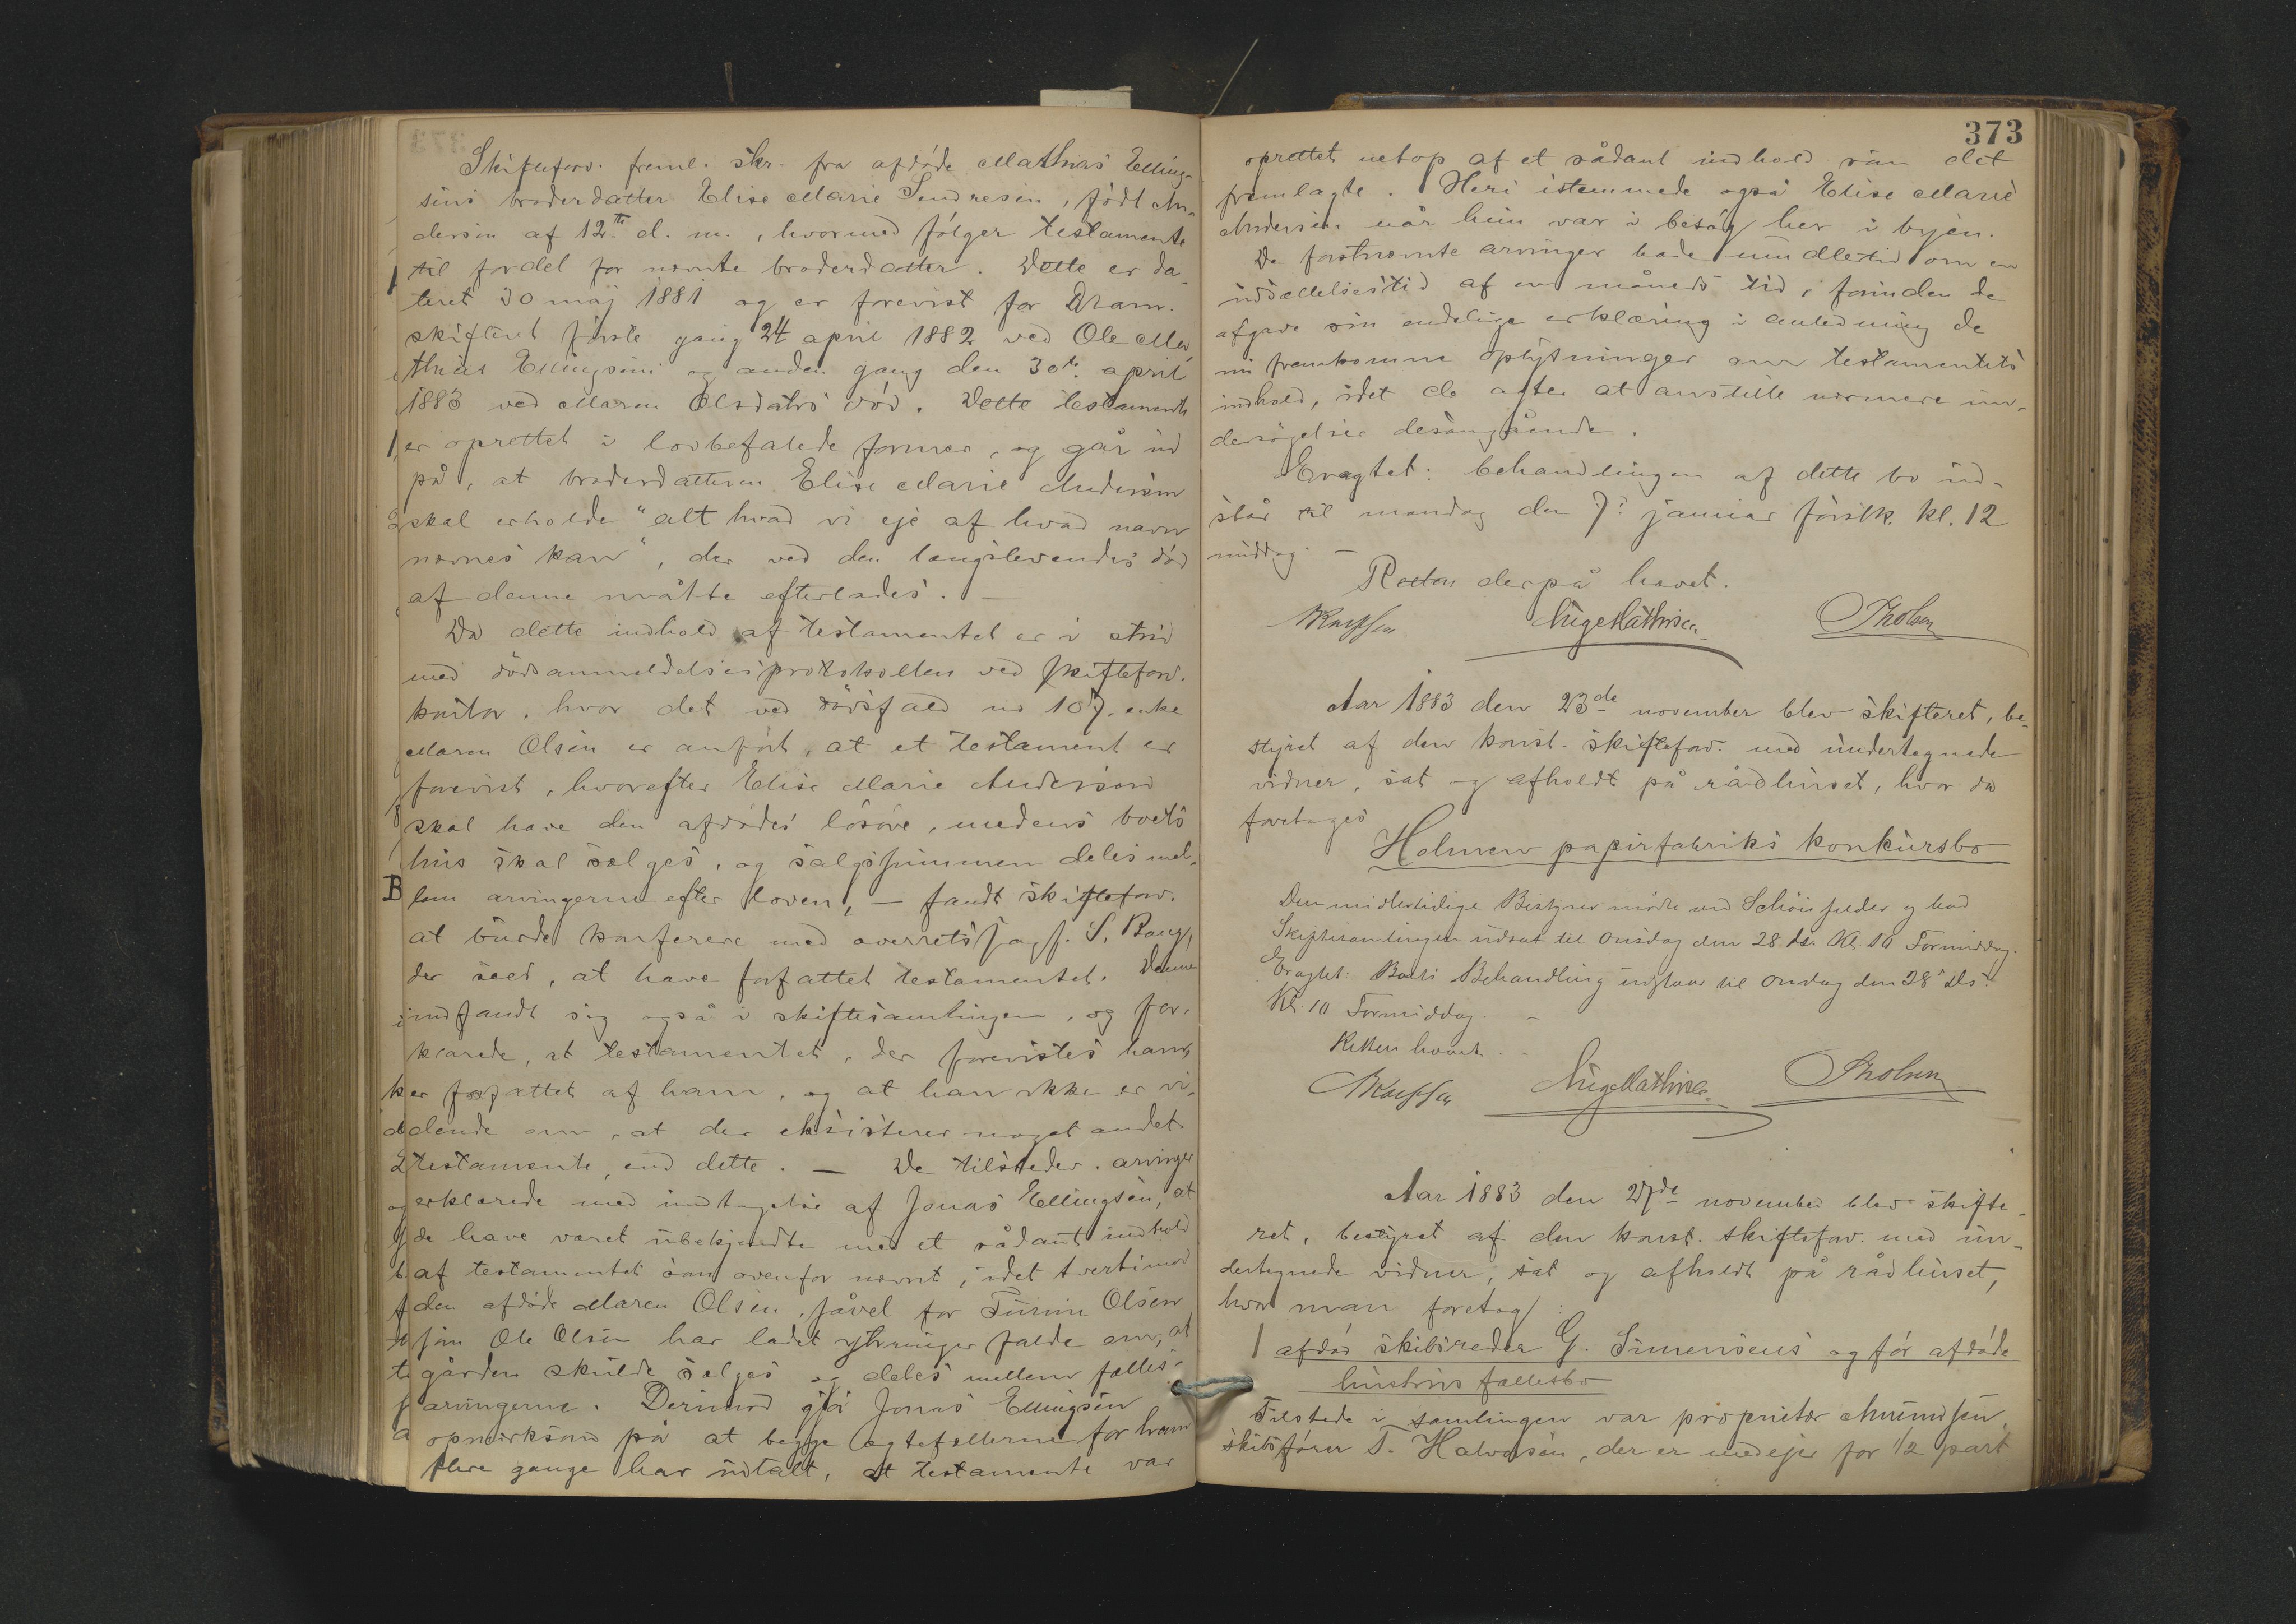 Skifteforv. freml. skr. fra afdøde Mathias Elling-
sens broderdatter Elise Marie Sendresen, født An-
dersen af 12te d. m., hvormed følger testamente
til fordel for nævnte broderdatter. Dette er da-
teret 30 maj 1881 og er forevist for Dram.
skifteret første gang 24 april 1882 ved Ole Ma-
thias Ellingsens og anden gang den 30te april
1883 ved Maren Olsdatrs død. Dette testamente
er oprettet i lovbefalede former, og går ud
på, at broderdatteren Elise Marie Andersen
skal erholde "alt hvad vi eje af hvad navn
nævnes kan", der ved den længstlevendes død
af denne måtte efterlades. —
Da dette indhold af testamentet er i strid
med dødsanmeldelsesprotokollen ved skifteforv.
kontor, hvor det ved dødsfald no 107, enke
Maren Olsen er anført, at et testament er
forevist, hvorefter Elise Marie Anderson
skal have den afdødes løsøre, medens boets
hus skal sælges, og salgssummen deles mel-
lem arvingerne efter loven, — fandt skifteforv.
at burde konferere med overretssagf. S. Rang,
der sees, at have forfattet testamentet. Denne
indfandt sig også i skiftesamlingen, og for-
klarede, at testamentet, der forevistes ham,
er forfattet af ham, og at han ikke er vi-
dende om, at der eksisterer noget andet
testamente, end dette. — De tilstedev. arvinger
erklærede med undtagelse af Jonas Ellingsen, at
de have været ubekjendte med et sådant indhold
af testamentet som ovenfor nævnt, idet tvertimod
den afdøde Maren Olsen, såvel for Turine Olsen
som Ole Olsen har ladet ytringer falde om, at
gården skulde sælges og deles mellem fælles-
arvingerne. Derimod gjør Jonas Ellingsen
opmærksom på at begge ægtefællerne for ham
flere gange har udtalt, at testamente var
373
oprettet netop af et sådant indhold som det
fremlagte. Heri istemmede også Elise Marie
Andersen når hun var i besøg her i byen.
De førstnævnte arvinger bade imidlertid om en
udsættelsestid af en måneds tid, forinden de
afgave sin endelige erklæring i anledning de
nu fremkomne oplysninger om testamentets
indhold, idet de agter at anstille nærmere un-
dersøgelser desangående.
Eragtet: behandlingen af dette bo ud-
står til mandag den 7de januar førstk. kl. 12
middag. —
Retten derpå hævet.
Aage Mathisen
Aar 1883 den 23de november blev skifteret, be-
styret af den konst. skifteforv. med undertegnede
vidner, sat og afholdt på rådhuset, hvor da
foretoges
Holmen papirfabriks konkursbo
Den midlertidige Bestyrer mødte ved Schønfelder og bad
Skiftesamlingen udsat til Onsdag den 28 ds. Kl. 10 Formiddag.
Eragtet: Boets Behandling udstaar til Onsdag den 28de ds.
Kl. 10 Formiddag. —
Retten hævet. —
Aage Mathisen
Aar 1883 den 27de november blev skifte-
ret, bestyret af den konst. skifteforv. med un-
dertegnede vidner, sat og afholdt på rådhuset,
hvor man foretog:
1 afdøde skibsreder G. Simensens og før afdøde
hustrus fællesbo
Tilstede i samlingen var proprietær Amundsen,
skibsfører T. Halvorsen, der er medejer for 1/2 part